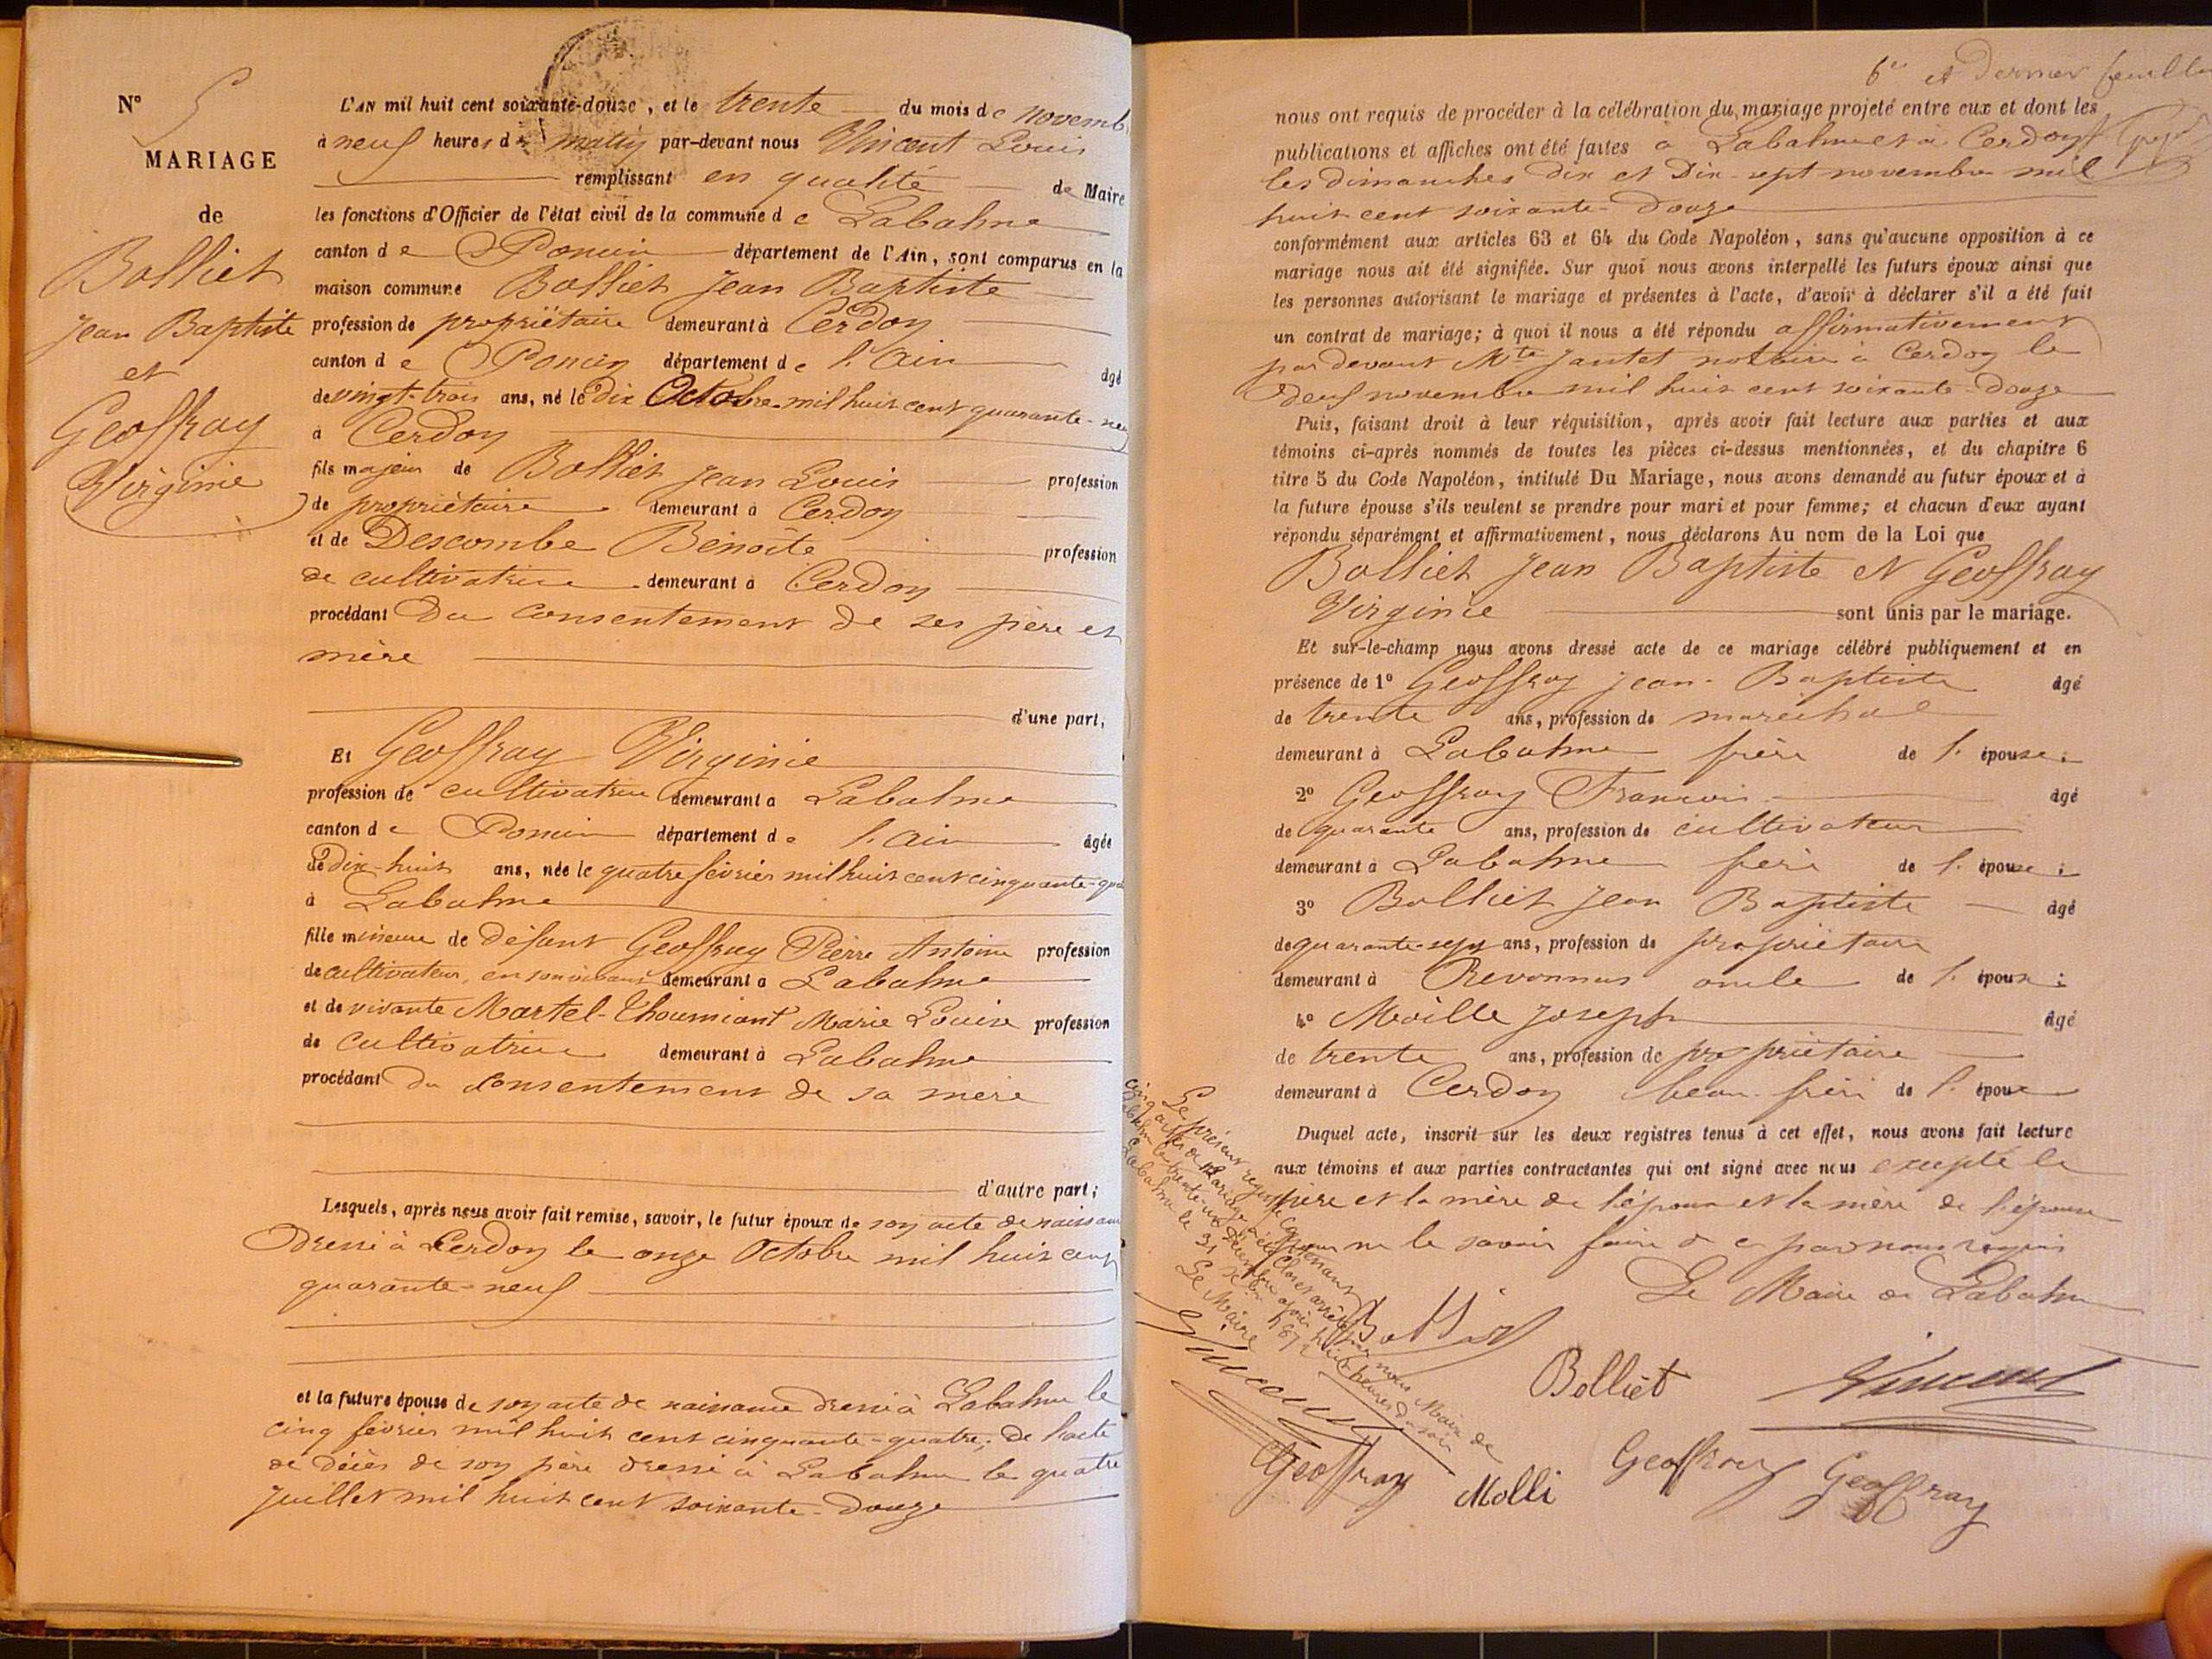 N° 5
MARIAGE
de
Bolliet
Jean Baptiste
et
Geoffray
Virginie
L'AN mil huit cent soixante-douze, et le trente du mois de novemb
à neuf heures du matin par-devant nous Vincent Louis
remplissant en qualité de Maire
les fonctions d'Officier de l'état civil de la commune de Labalme
canton de Poncin département de l'Ain, sont comparus en la
maison commune Bolliet Jean Baptiste
profession de propriétaire demeurant à Cerdon
canton de Poncin département de l'Ain âgé
de vingt-trois ans, né le dix Octobre mil huit cent quarante-neuf
à Cerdon
fils majeur de Bolliet Jean Louis profession
de propriétaire demeurant à Cerdon
et de Descombe Benoîte profession
de cultivatrice demeurant à Cerdon
procédant du consentement de ses père et
mère
d'une part,
Et Geoffray Virginie
profession de cultivatrice demeurant à Labalme
canton de Poncin département de l'Ain âgée
de dix-huit ans, née le quatre février mil huit cent cinquante-qua
à Labalme
fille mineure de défunt Geoffray Pierre Antoine profession
de cultivateur, en son vivant demeurant à Labalme
et de vivante Martel-Thoumiant Marie Louise profession
de cultivatrice demeurant à Labalme
procédant du consentement de sa mère
d'autre part;
Lesquels, après nous avoir fait remise, savoir, le futur époux de son acte de naissance
dressé à Cerdon le onze Octobre mil huit cent
quarante-neuf
et la future épouse de son acte de naissance dressé à Labalme le
cinq février mil huit cent cinquante-quatre; de l'acte
de décès de son père dressé à Labalme le quatre
juillet mil huit cent soixante-douze
6e et dernier feuillet
nous ont requis de procéder à la célébration du mariage projeté entre eux et dont les
publications et affiches ont été faites à Labalme et à Cerdon
les dimanches dix et dix-sept novembre mil
huit cent soixante-douze
conformément aux articles 63 et 64 du Code Napoléon, sans qu'aucune opposition à ce
mariage nous ait été signifiée. Sur quoi nous avons interpellé les futurs époux ainsi que
les personnes autorisant le mariage et présentes à l'acte, d'avoir à déclarer s'il a été fait
un contrat de mariage; à quoi il nous a été répondu affirmativement
par devant Mte Jantet notaire à Cerdon le
neuf novembre mil huit cent soixante-douze
Puis, faisant droit à leur réquisition, après avoir fait lecture aux parties et aux
témoins ci-après nommés de toutes les pièces ci-dessus mentionnées, et du chapitre 6
titre 5 du Code Napoléon, intitulé Du Mariage, nous avons demandé au futur époux et à
la future épouse s'ils veulent se prendre pour mari et pour femme; et chacun d'eux ayant
répondu séparément et affirmativement, nous déclarons Au nom de la Loi que
Bolliet Jean Baptiste et Geoffray
Virginie sont unis par le mariage.
Et sur-le-champ nous avons dressé acte de ce mariage célébré publiquement et en
présence de 1° Geoffray Jean-Baptiste âgé
de trente ans, profession de maréchal
demeurant à Labalme frère de l'épouse;
2° Geoffray François âgé
de quarante ans, profession de cultivateur
demeurant à Labalme frère de l'épouse;
3° Bolliet Jean Baptiste âgé
de quarante-sept ans, profession de propriétaire
demeurant à Revonnas oncle de l'époux;
4° Moille Joseph âgé
de trente ans, profession de propriétaire
demeurant à Cerdon beau-frère de l'époux
Duquel acte, inscrit sur les deux registres tenus à cet effet, nous avons fait lecture
aux témoins et aux parties contractantes qui ont signé avec nous excepté le
père et la mère de l'époux et la mère de l'épouse
pour ne le savoir faire de ce par nous requis
Le Maire de Labalme
Le présent registre contenant
cinq actes de Mariage a été clos et arrêté par nous Maire de
Labalme le trente-un décembre après huit heures du soir
Labalme le 31 Xbre 1872
Le Maire
Vincent
Bolliet
Bolliet
Vincent
Geoffray
Molli
Geoffray
Geoffray